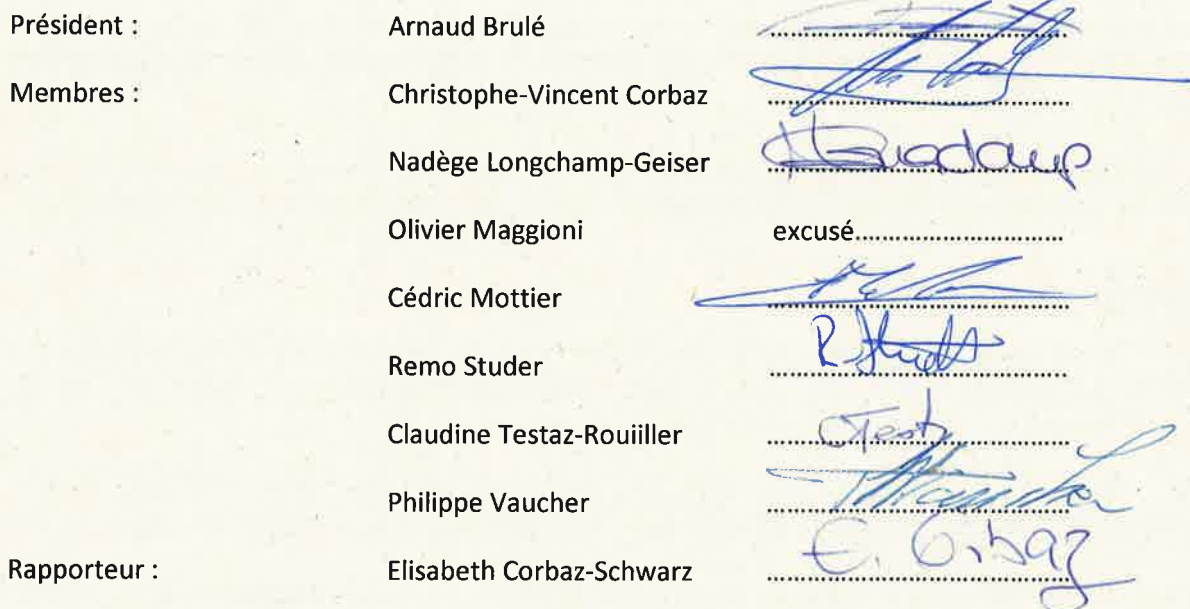 Président : Arnaud Brulé ....................
Membres : Christophe-Vincent Corbaz ....................
Nadège Longchamp-Geiser ....................
Olivier Maggioni excusé....................
Cédric Mottier ....................
Remo Studer ....................
R. Studer
Claudine Testaz-Rouiiller ....................
Philippe Vaucher ....................
E. Corbaz
Rapporteur : Elisabeth Corbaz-Schwarz ....................